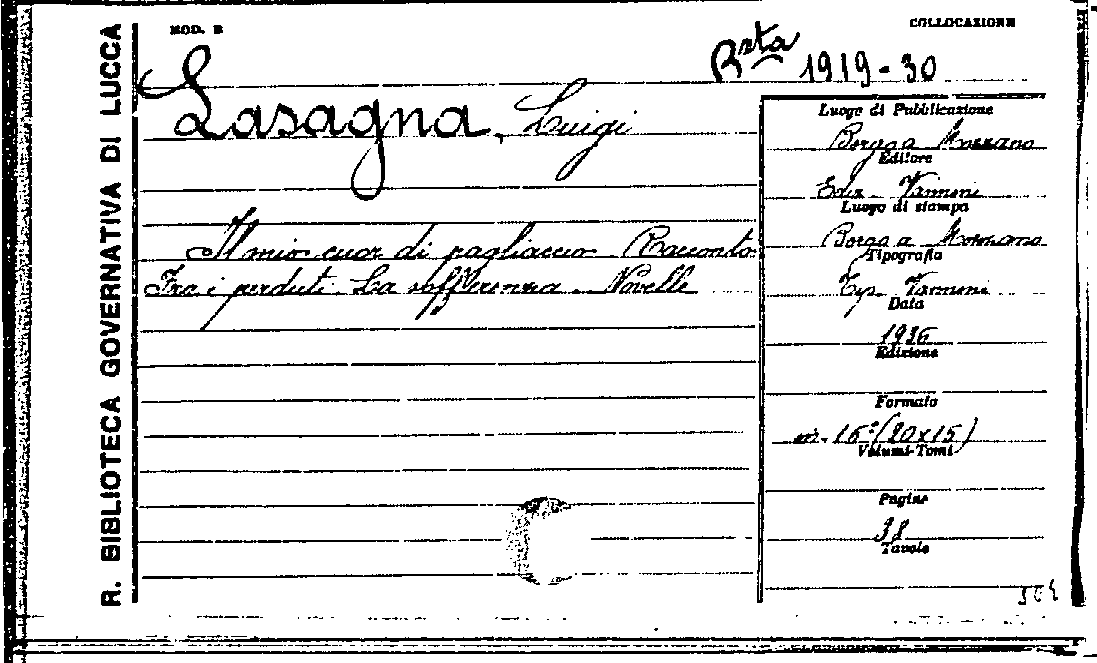 R. BIBLIOTECA GOVERNATIVA DI LUCCA
MOD. B
COLLOCAZIONE
Bsta 1919-30
Lasagna, Luigi
Il mio cuor di pagliaccio - Racconto
Fra i perduti - La sofferenza - Novelle
Luogo di Pubblicazione
Borgo a Mozzano
Editore
Ediz. Vannini
Luogo di stampa
Borgo a Mozzano
Tipografia
Tip. Vannini
Data
1936
Edizione
Formato
in-16° (20x15)
Volumi-Tomi
Pagine
38
Tavole